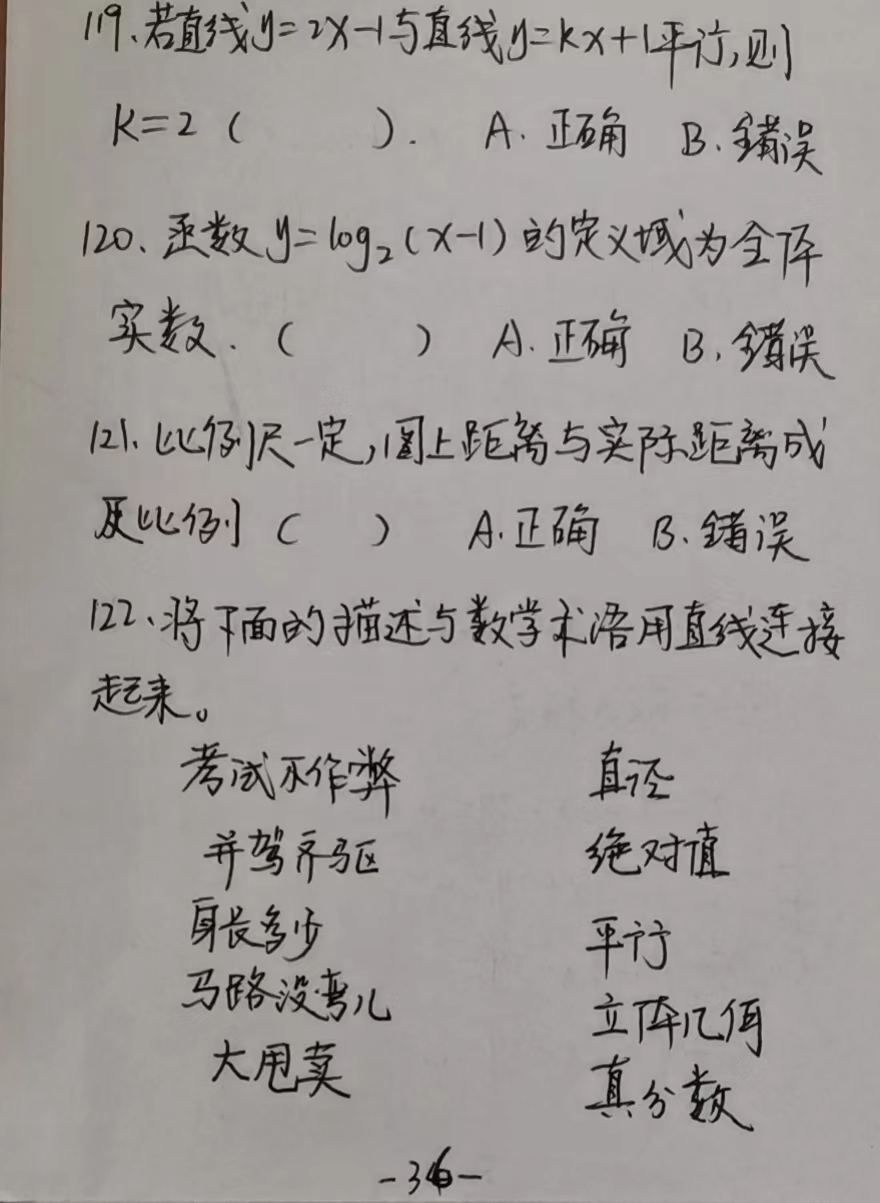 119、若直线y=2x-1与直线y=kx+1平行,则
k=2 ( ). A. 正确 B. 错误
120、函数y=log₂(x-1)的定义域为全体
实数. ( ) A. 正确 B. 错误
121、比例尺一定,图上距离与实际距离成
反比例 ( ) A. 正确 B. 错误
122、将下面的描述与数学术语用直线连接
起来。
考试不作弊 直径
并驾齐驱 绝对值
身长多少 平行
马路没弯儿 立体几何
大甩卖 真分数
-36-